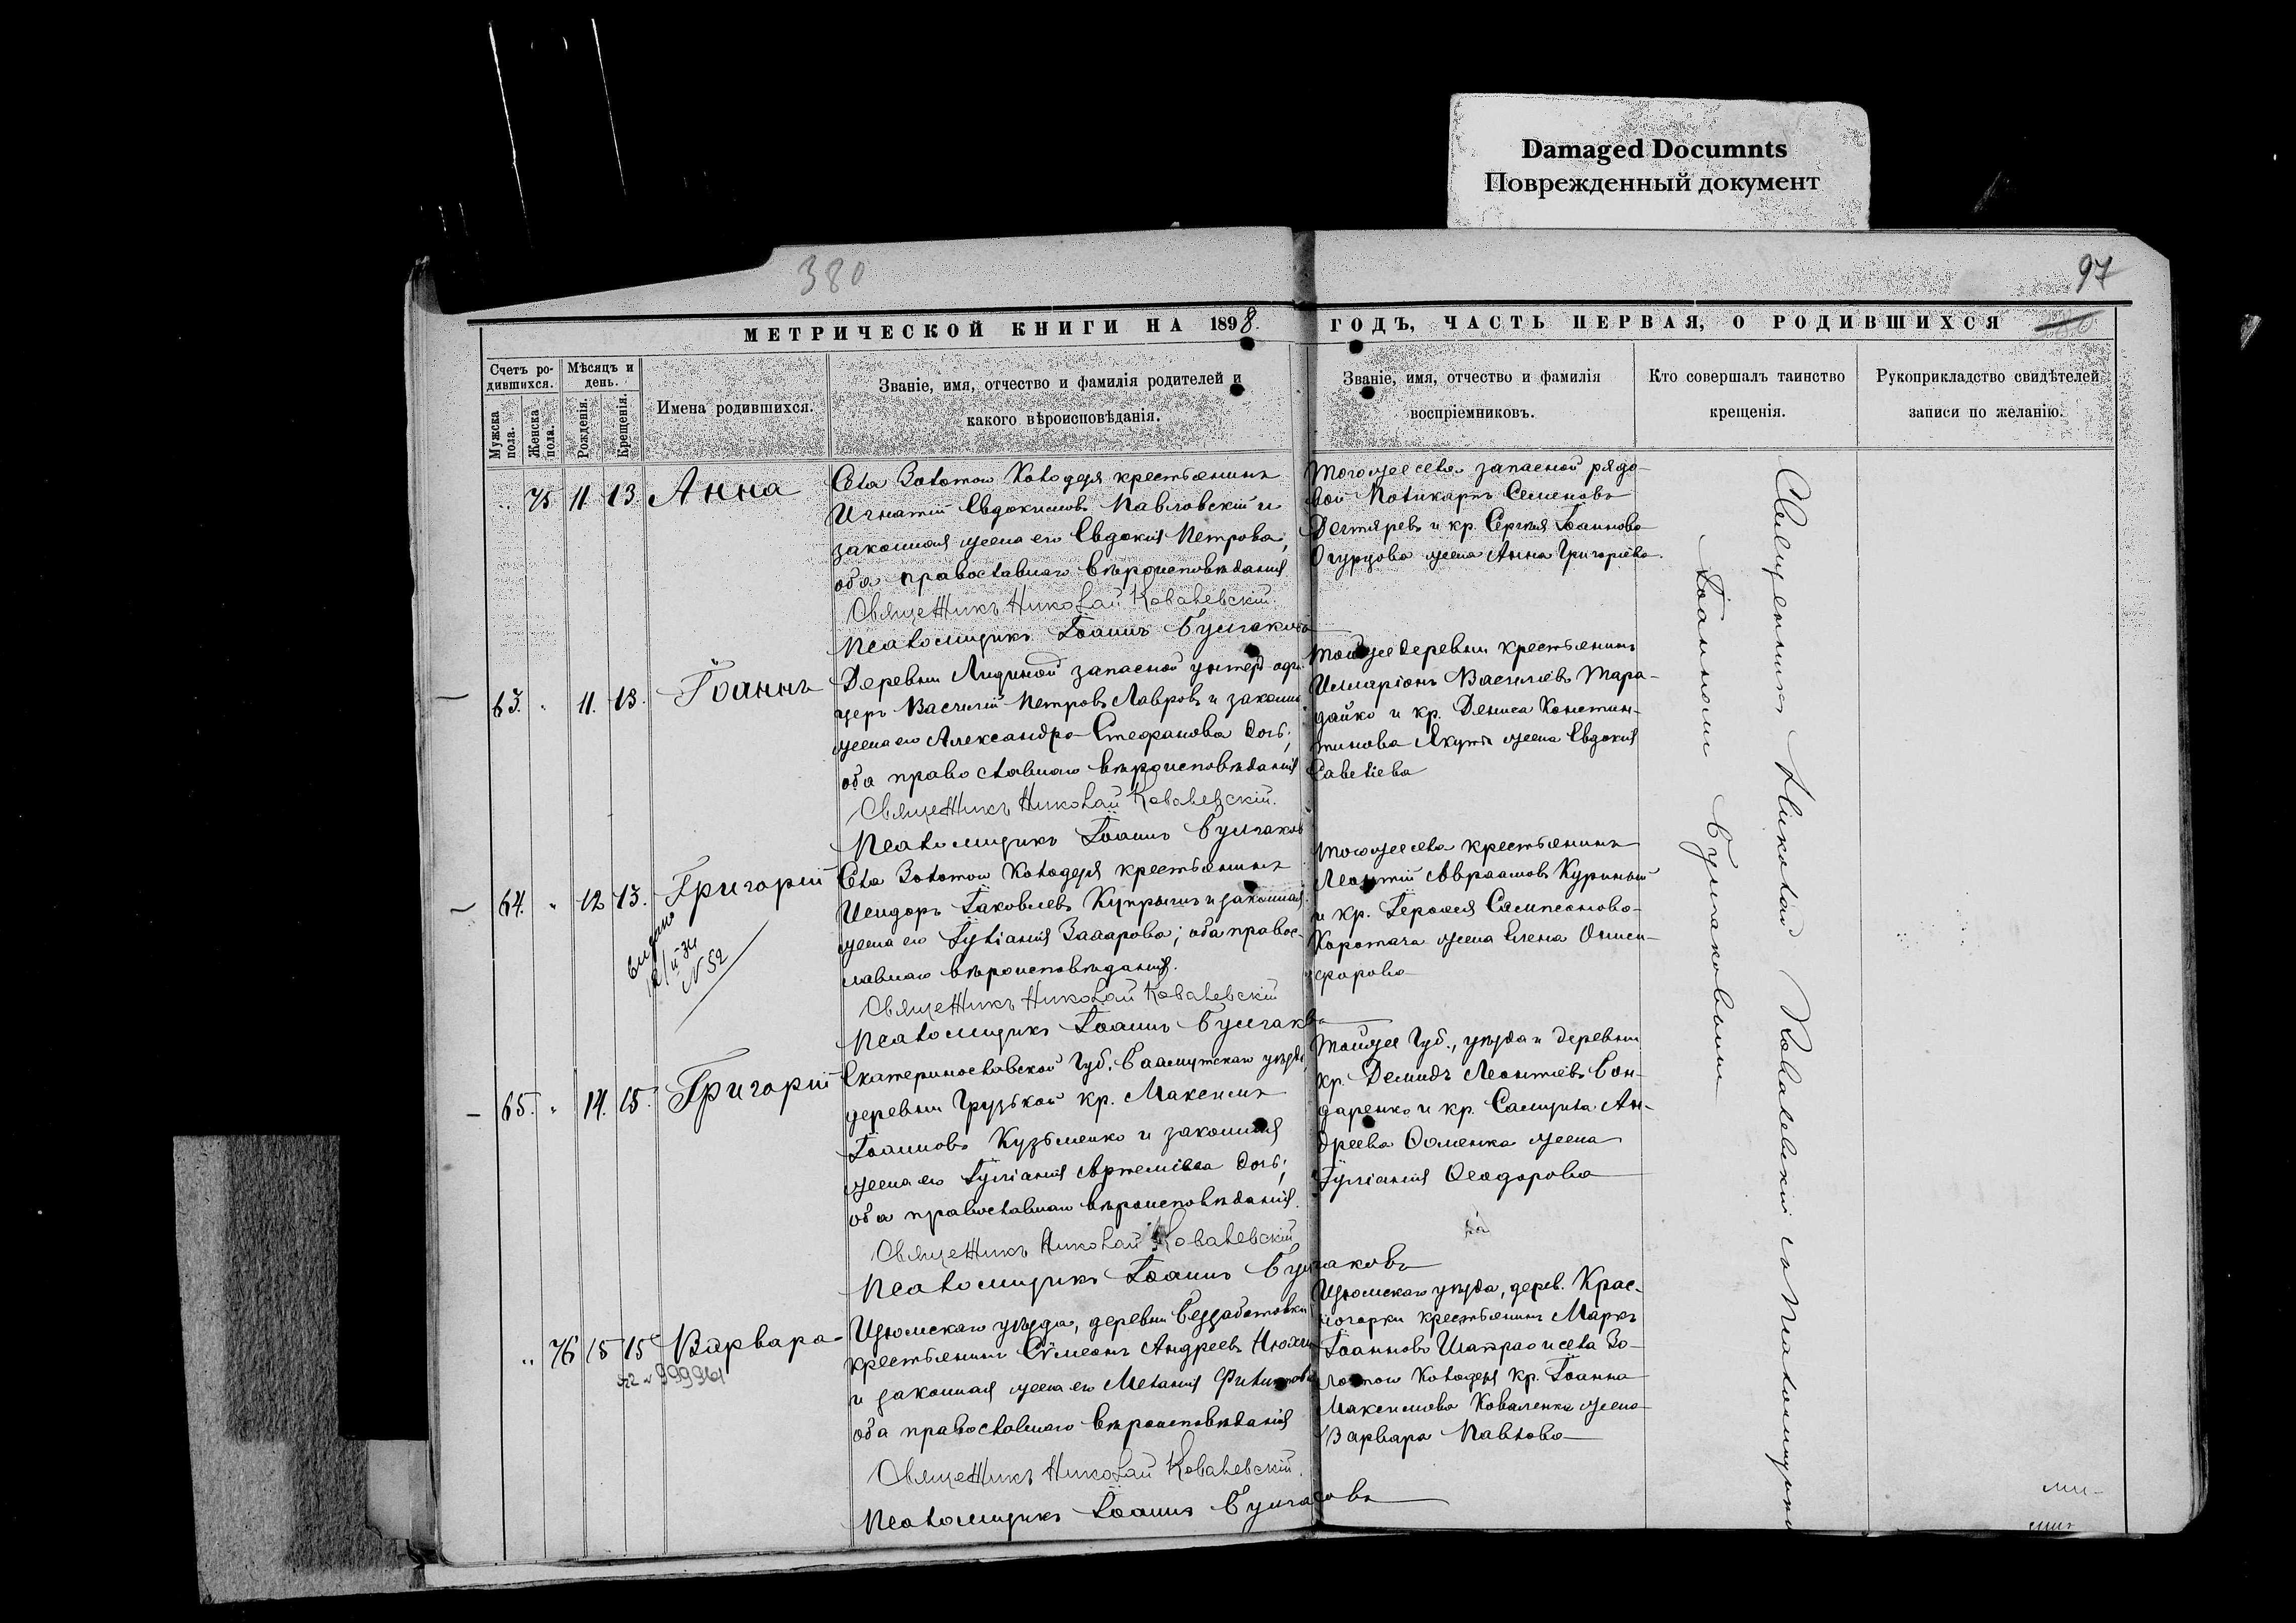 Damaged Documnts
Поврежденный документ
380
97
МЕТРИЧЕСКОЙ КНИГИ НА 1898. ГОДЪ, ЧАСТЬ ПЕРВАЯ, О РОДИВШИХСЯ
Счетъ ро-
дившихся.
Мужска
пола.
Женска
пола.
Мѣсяцъ и
день.
Рожденія.
Крещенія.
Имена родившихся.
Званіе, имя, отчество и фамилія родителей и
какого вѣроисповѣданія.
Званіе, имя, отчество и фамилія
воспріемниковъ.
Кто совершалъ таинство
крещенія.
Рукоприкладство свидѣтелей
записи по желанію.
" 75 11 13. Анна
Села Золотого Колодезя крестьянинъ
Игнатій Евдокимовъ Павловскій и
законная жена его Евдокія Петрова;
оба православнаго вѣроисповѣданія
Священникъ Николай Ковалевскій.
Псаломщикъ Іоаннъ Булгаковъ
Тогоже села запасной рядо-
вой Поликарпъ Семеновъ
Дегтяревъ и кр. Сергія Іоаннова
Огурцова жена Анна Григоріева
63. " 11. 13. Іоаннъ
Деревни Лидиной запасной унтеръ офи-
церъ Василій Петровъ Лавровъ и законн.
жена его Александра Стефанова дочь;
оба православнаго вѣроисповѣданія
Священникъ Николай Ковалевскій.
Псаломщикъ Іоаннъ Булгаковъ
Тойже деревни крестьянинъ
Илларіонъ Василіевъ Тара-
дайко и кр. Дениса Констан-
тинова Якутъ жена Евдокія
Савеліева
64. " 12 13. Григорій
выдано
№ 52
Села Золотого Колодезя крестьянинъ
Исидоръ Іаковлевъ Купрынъ и законная
жена его Іуліанія Захарова; оба правос-
лавнаго вѣроисповѣданія.
Священникъ Николай Ковалевскій
Псаломщикъ Іоаннъ Булгаковъ
Тогоже села крестьянинъ
Леонтій Авраамовъ Куриный
и кр. Герасія Сампсонова
Коротача жена Елена Ониси-
форова
65. " 14. 15. Григорій
Екатеринославской Губ. Бахмутскаго уѣзда,
деревни Грузькой кр. Максимъ
Іоанновъ Кузьменко и законная
жена его Іуліанія Артеміева дочь;
оба православнаго вѣроисповѣданія.
Священникъ Николай Ковалевскій
Псаломщикъ Іоаннъ Булгаковъ
Тойже Губ., уѣзда и деревни
кр. Демидъ Леонтіевъ Бон-
даренко и кр. Самуила Ан-
дреева Фоменка жена
Іуліанія Феодорова
" 76 15 15 Варвара
999961
Изюмскаго уѣзда, деревни Беззаботовки
крестьянинъ Сѵмеонъ Андреевъ
и законная жена его Меланія Филиппова
оба православнаго вѣроисповѣданія
Священникъ Николай Ковалевскій.
Псаломщикъ Іоаннъ Булгаковъ
Изюмскаго уѣзда, дерев. Крас-
ногорки крестьянинъ Маркъ
Іоанновъ Шапрао и села Зо-
лотого Колодезя кр. Іоанна
Максимова Коваленка жена
Варвара Павлова
Священникъ Николай Ковалевскій съ Псаломщикомъ
Іоанномъ Булгаковымъ